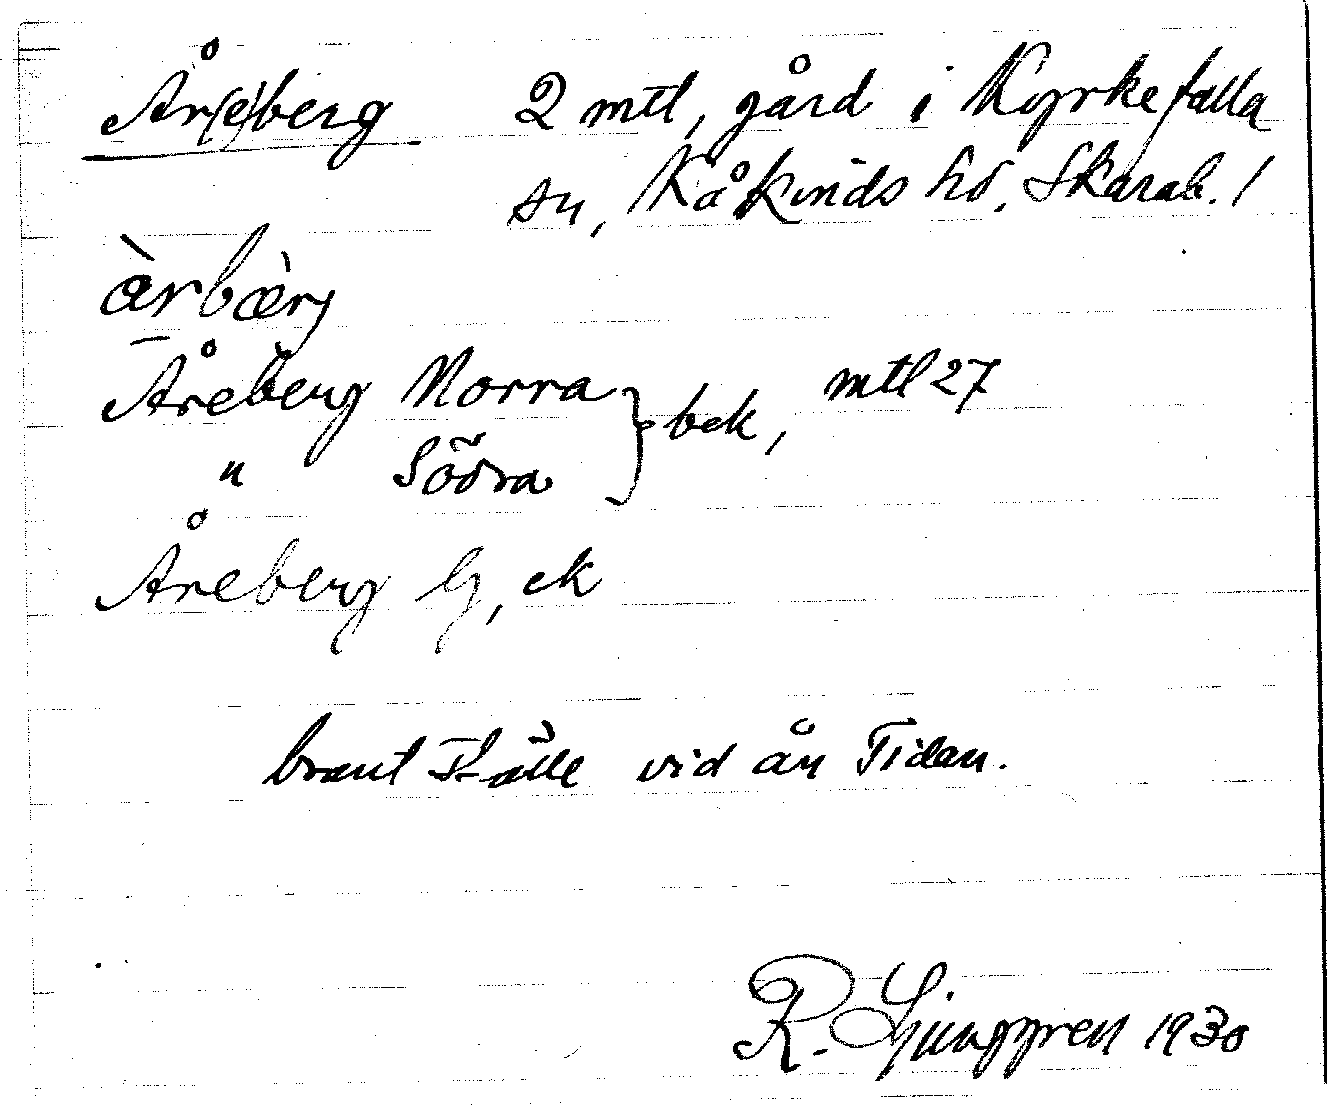 År(e)berg 2 mtl, gård i Kyrkefalla
sn, Kåkinds hd, Skarab. l
Åreberg Norra } bek, mtl 27
" Södra
Åreberg G, ek
brant ställe vid ån Tidan.
R. Ljunggren 1930